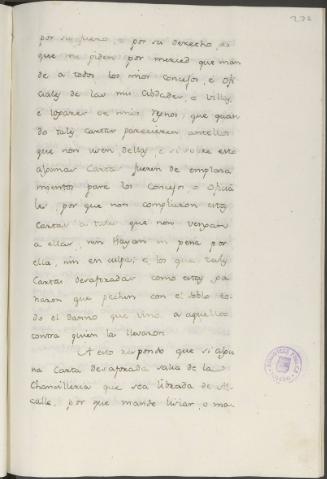 272
por su fuero, o por su derecho, es
que me piden por merced que man
de a todos los mios concejos, e Ofi
ciales de las mis Cibdades, e Villas,
e logares de mios Regnos, que quan
do tales cartas parecieren antellos
que non usen dellas, e si sobre esto
algunas Cartas fueren de emplaza
miento para los Concejos o Oficia
les, por que non complieron estas
Cartas a tales que non vengan
a ellas, nin hayan pena por
ella, nin en culpa; e los que tales
Cartas desaforadas como estas, ga
naron que pechen con el doblo to
do el danno que vino a aquellos
contra quien la llevaron.
A esto respondo que si algu
na Carta desaforada salia de la
Chancilleria que sea librada de Al
calle, por que mande lisiar, o ma